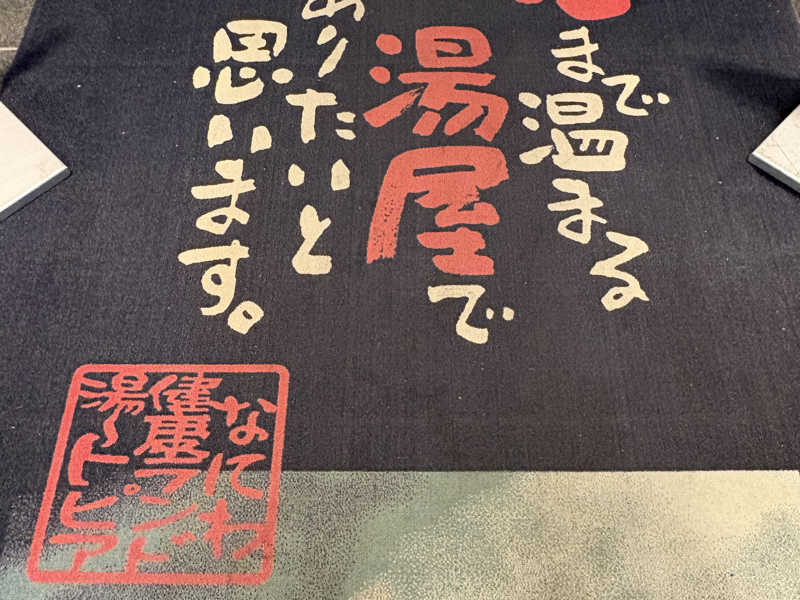 まで温まる
湯屋で
ありたいと
思います。
なにわ
健康ランド
湯〜トピア